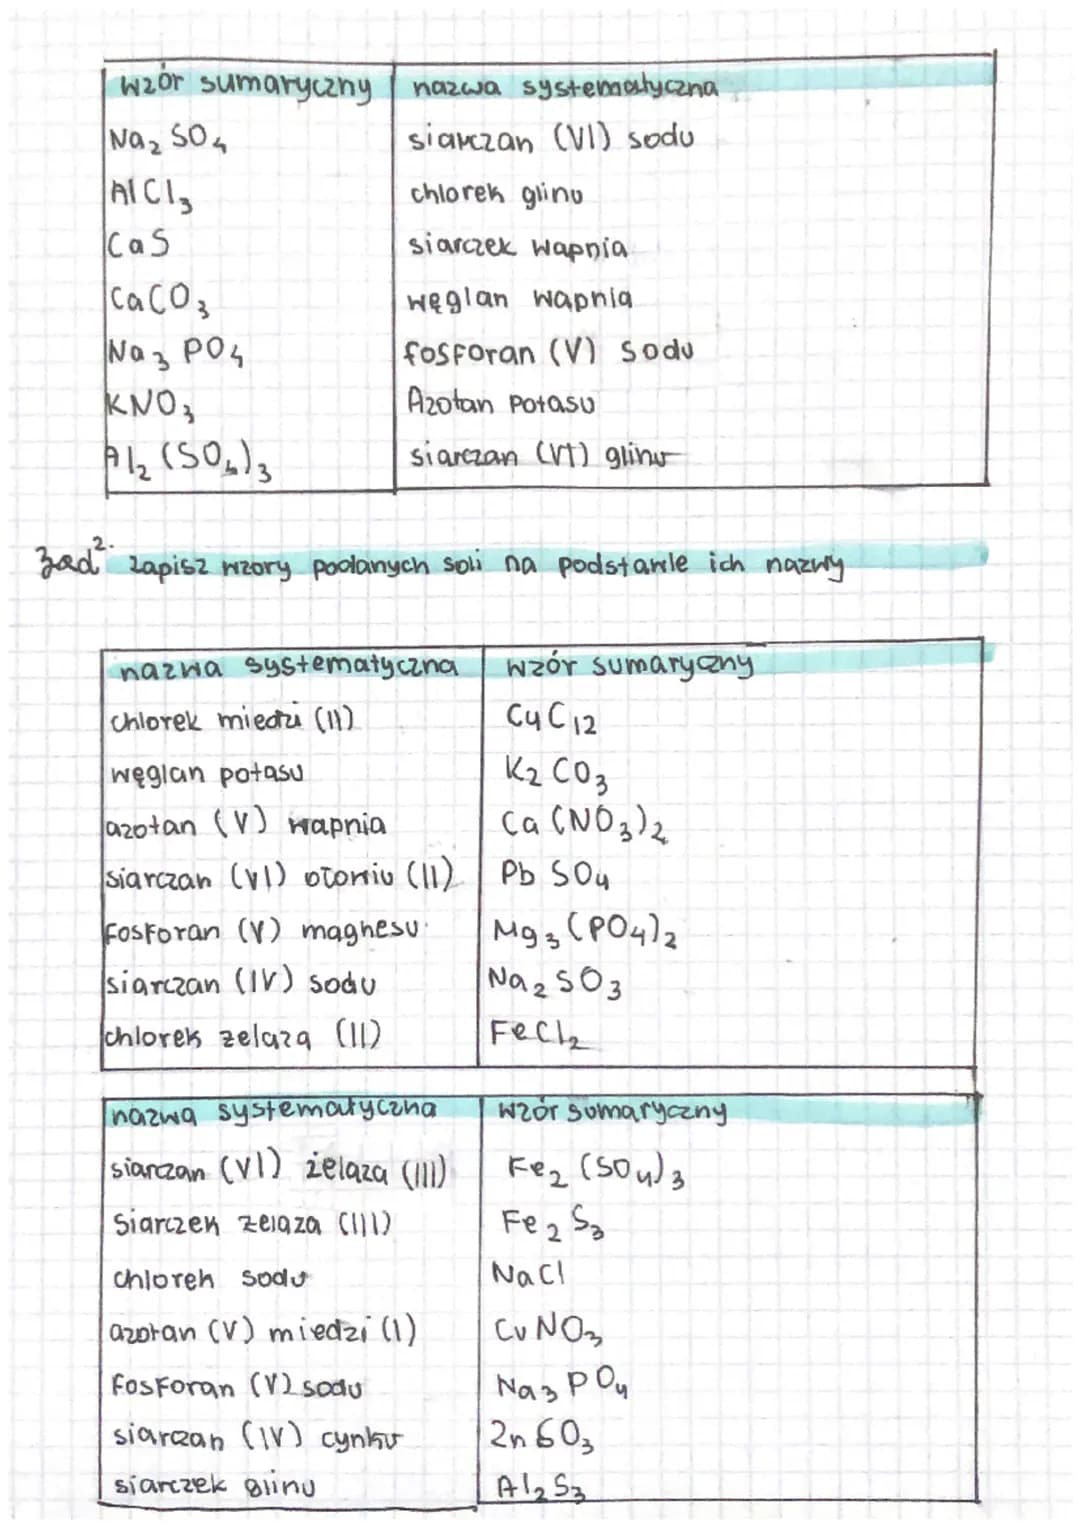 wzór sumaryczny nazwa systematyczna
Na₂SO₄ siarczan (VI) sodu
AlCl₃ chlorek glinu
CaS siarczek wapnia
CaCO₃ węglan wapnia
Na₃PO₄ fosforan (V) sodu
KNO₃ Azotan potasu
Al₂(SO₄)₃ siarczan (VI) glinu
zad². zapisz wzory podanych soli na podstawie ich nazwy
nazwa systematyczna wzór sumaryczny
chlorek miedzi (II) CuCl2
węglan potasu K₂CO₃
azotan (V) wapnia Ca(NO₃)₂
siarczan (VI) ołowiu (II) PbSO₄
fosforan (V) magnesu Mg₃(PO₄)₂
siarczan (IV) sodu Na₂SO₃
chlorek żelaza (II) FeCl₂
nazwa systematyczna wzór sumaryczny
siarczan (VI) żelaza (III) Fe₂(SO₄)₃
siarczek żelaza (III) Fe₂S₃
chlorek sodu NaCl
azotan (V) miedzi (I) CuNO₃
fosforan (V) sodu Na₃PO₄
siarczan (IV) cynku ZnSO₃
siarczek glinu Al₂S₃